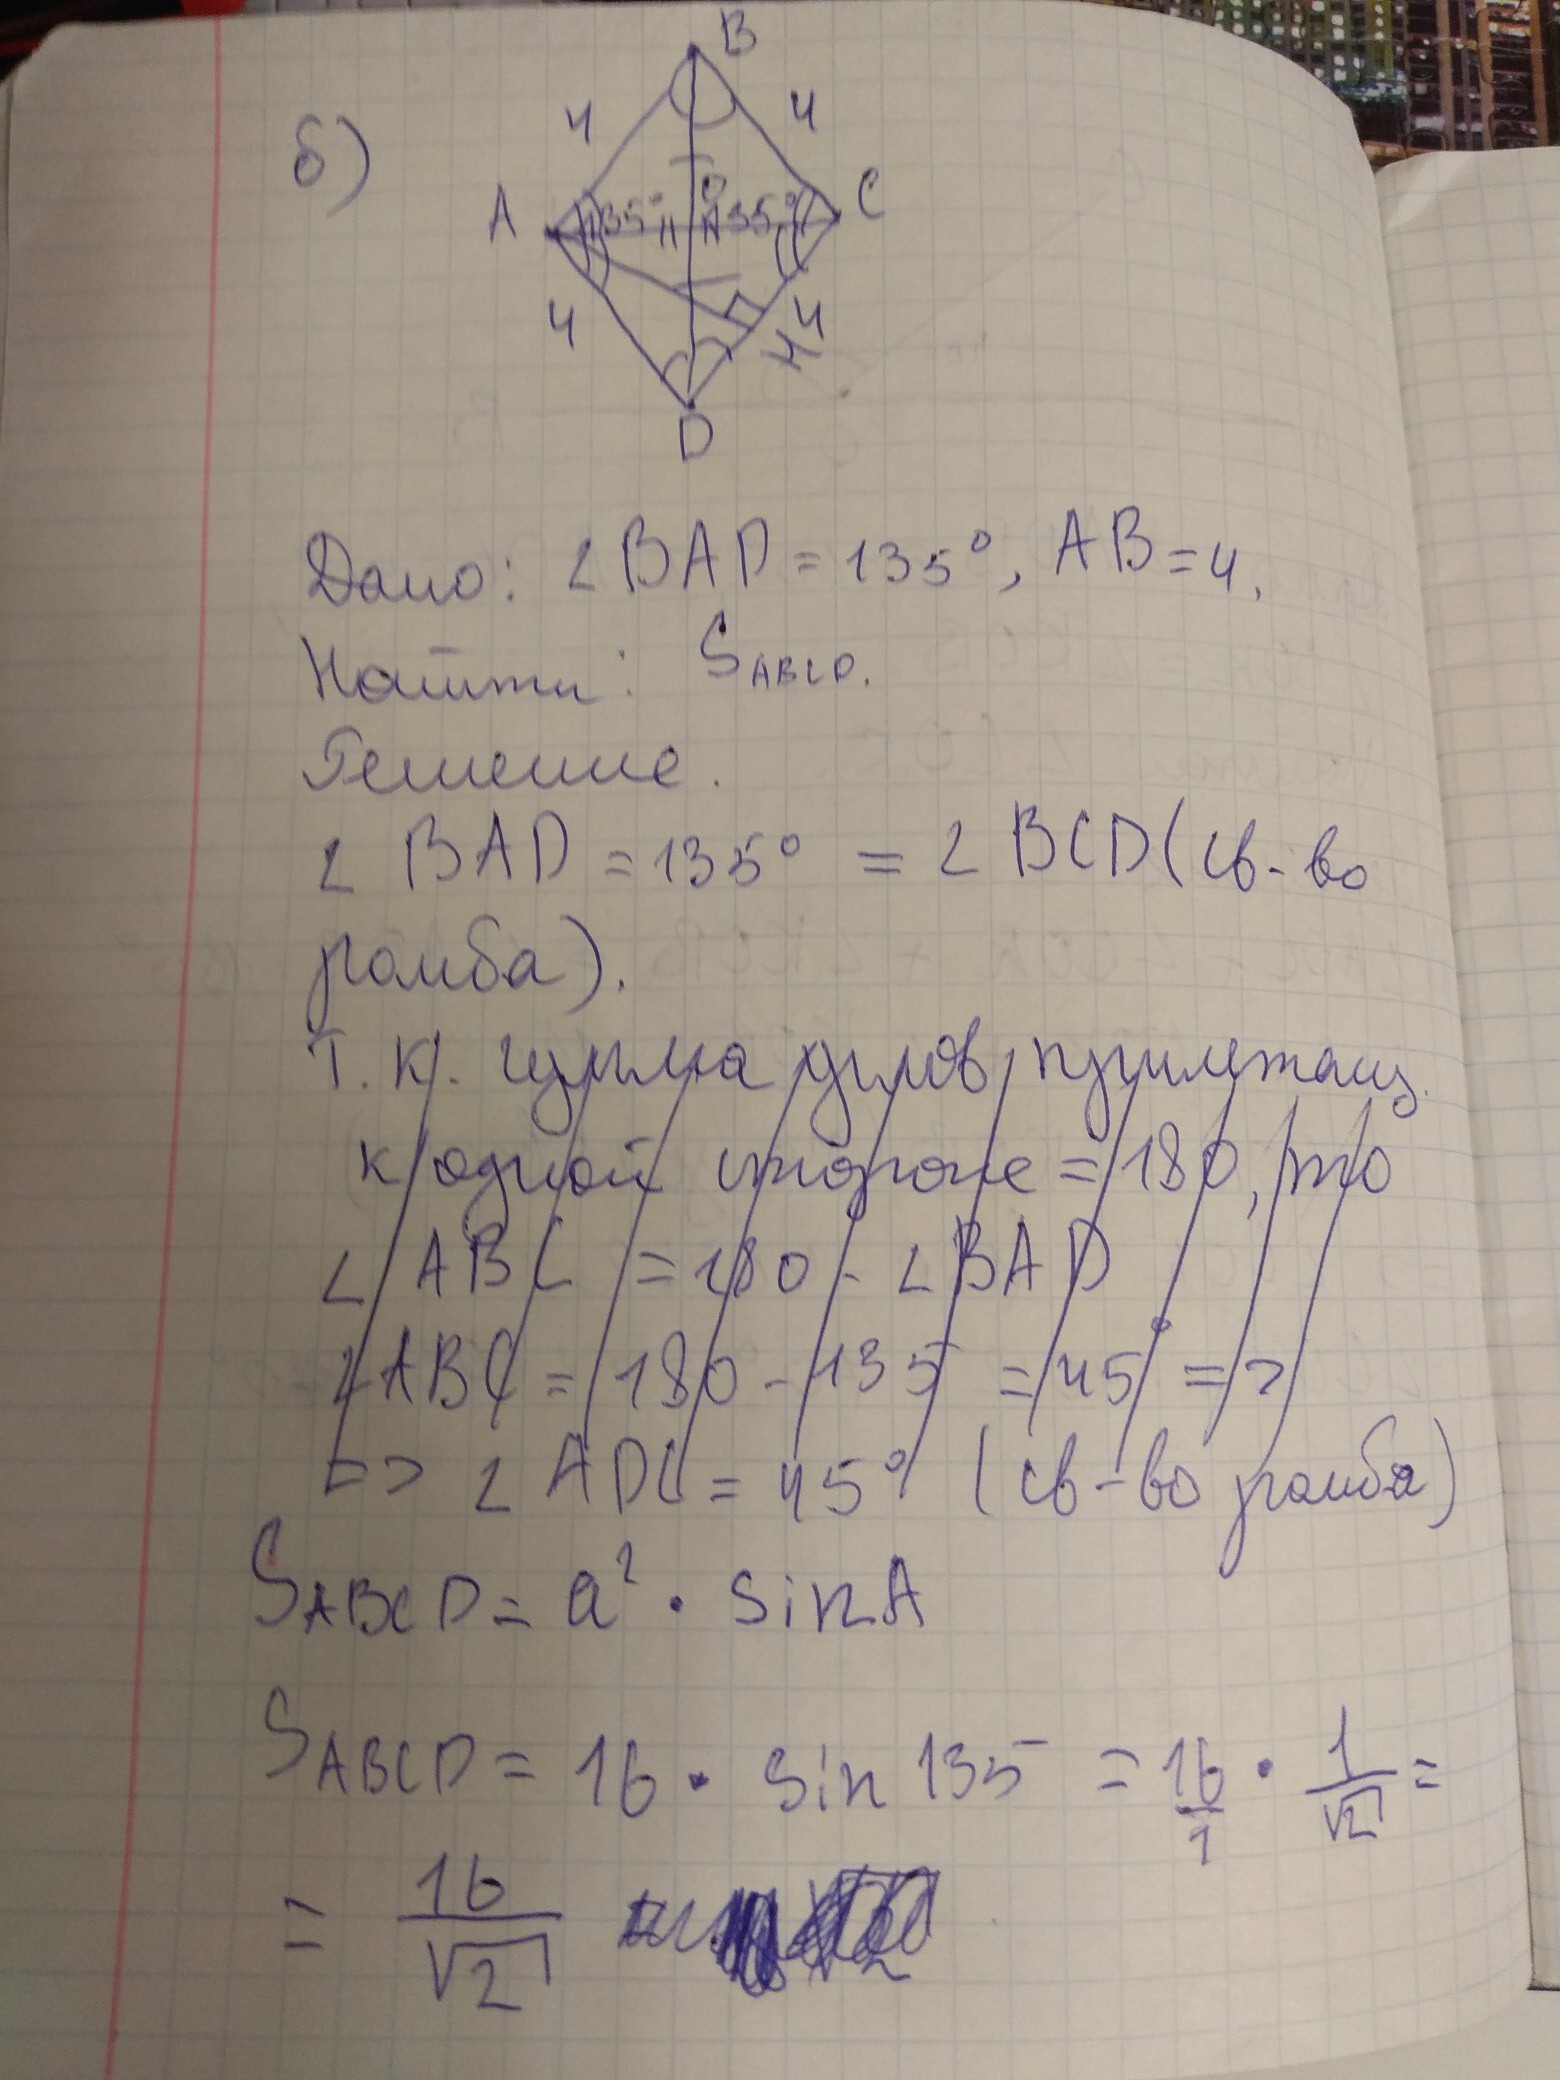 б)
B
4 4
A 135° O 135° C
4 4
H
D
Дано: ∠BAD = 135°, AB = 4.
Найти: S_ABCD.
Решение.
∠ BAD = 135° = ∠ BCD (св-во
ромба).
Т.к. сумма углов прилежащ.
к одной стороне = 180, то
∠ ABC = 180 - ∠BAD
∠ABC = 180 - 135 = 45° =>
=> ∠ ADC = 45° (св-во ромба)
S_ABCD = a² · sin A
S_ABCD = 16 · sin 135 = 16/1 · 1/√2 =
= 16/√2